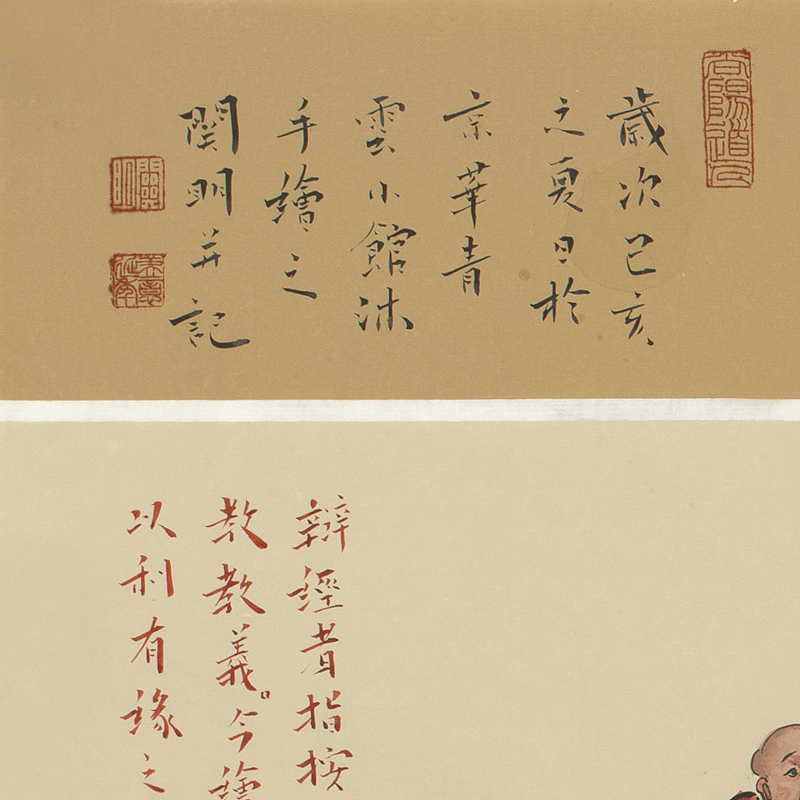 歲次己亥
之夏日於
京華青
雲小館沐
手繪之
關明并記
辯經者指按
教教義。今繪
以利有緣之